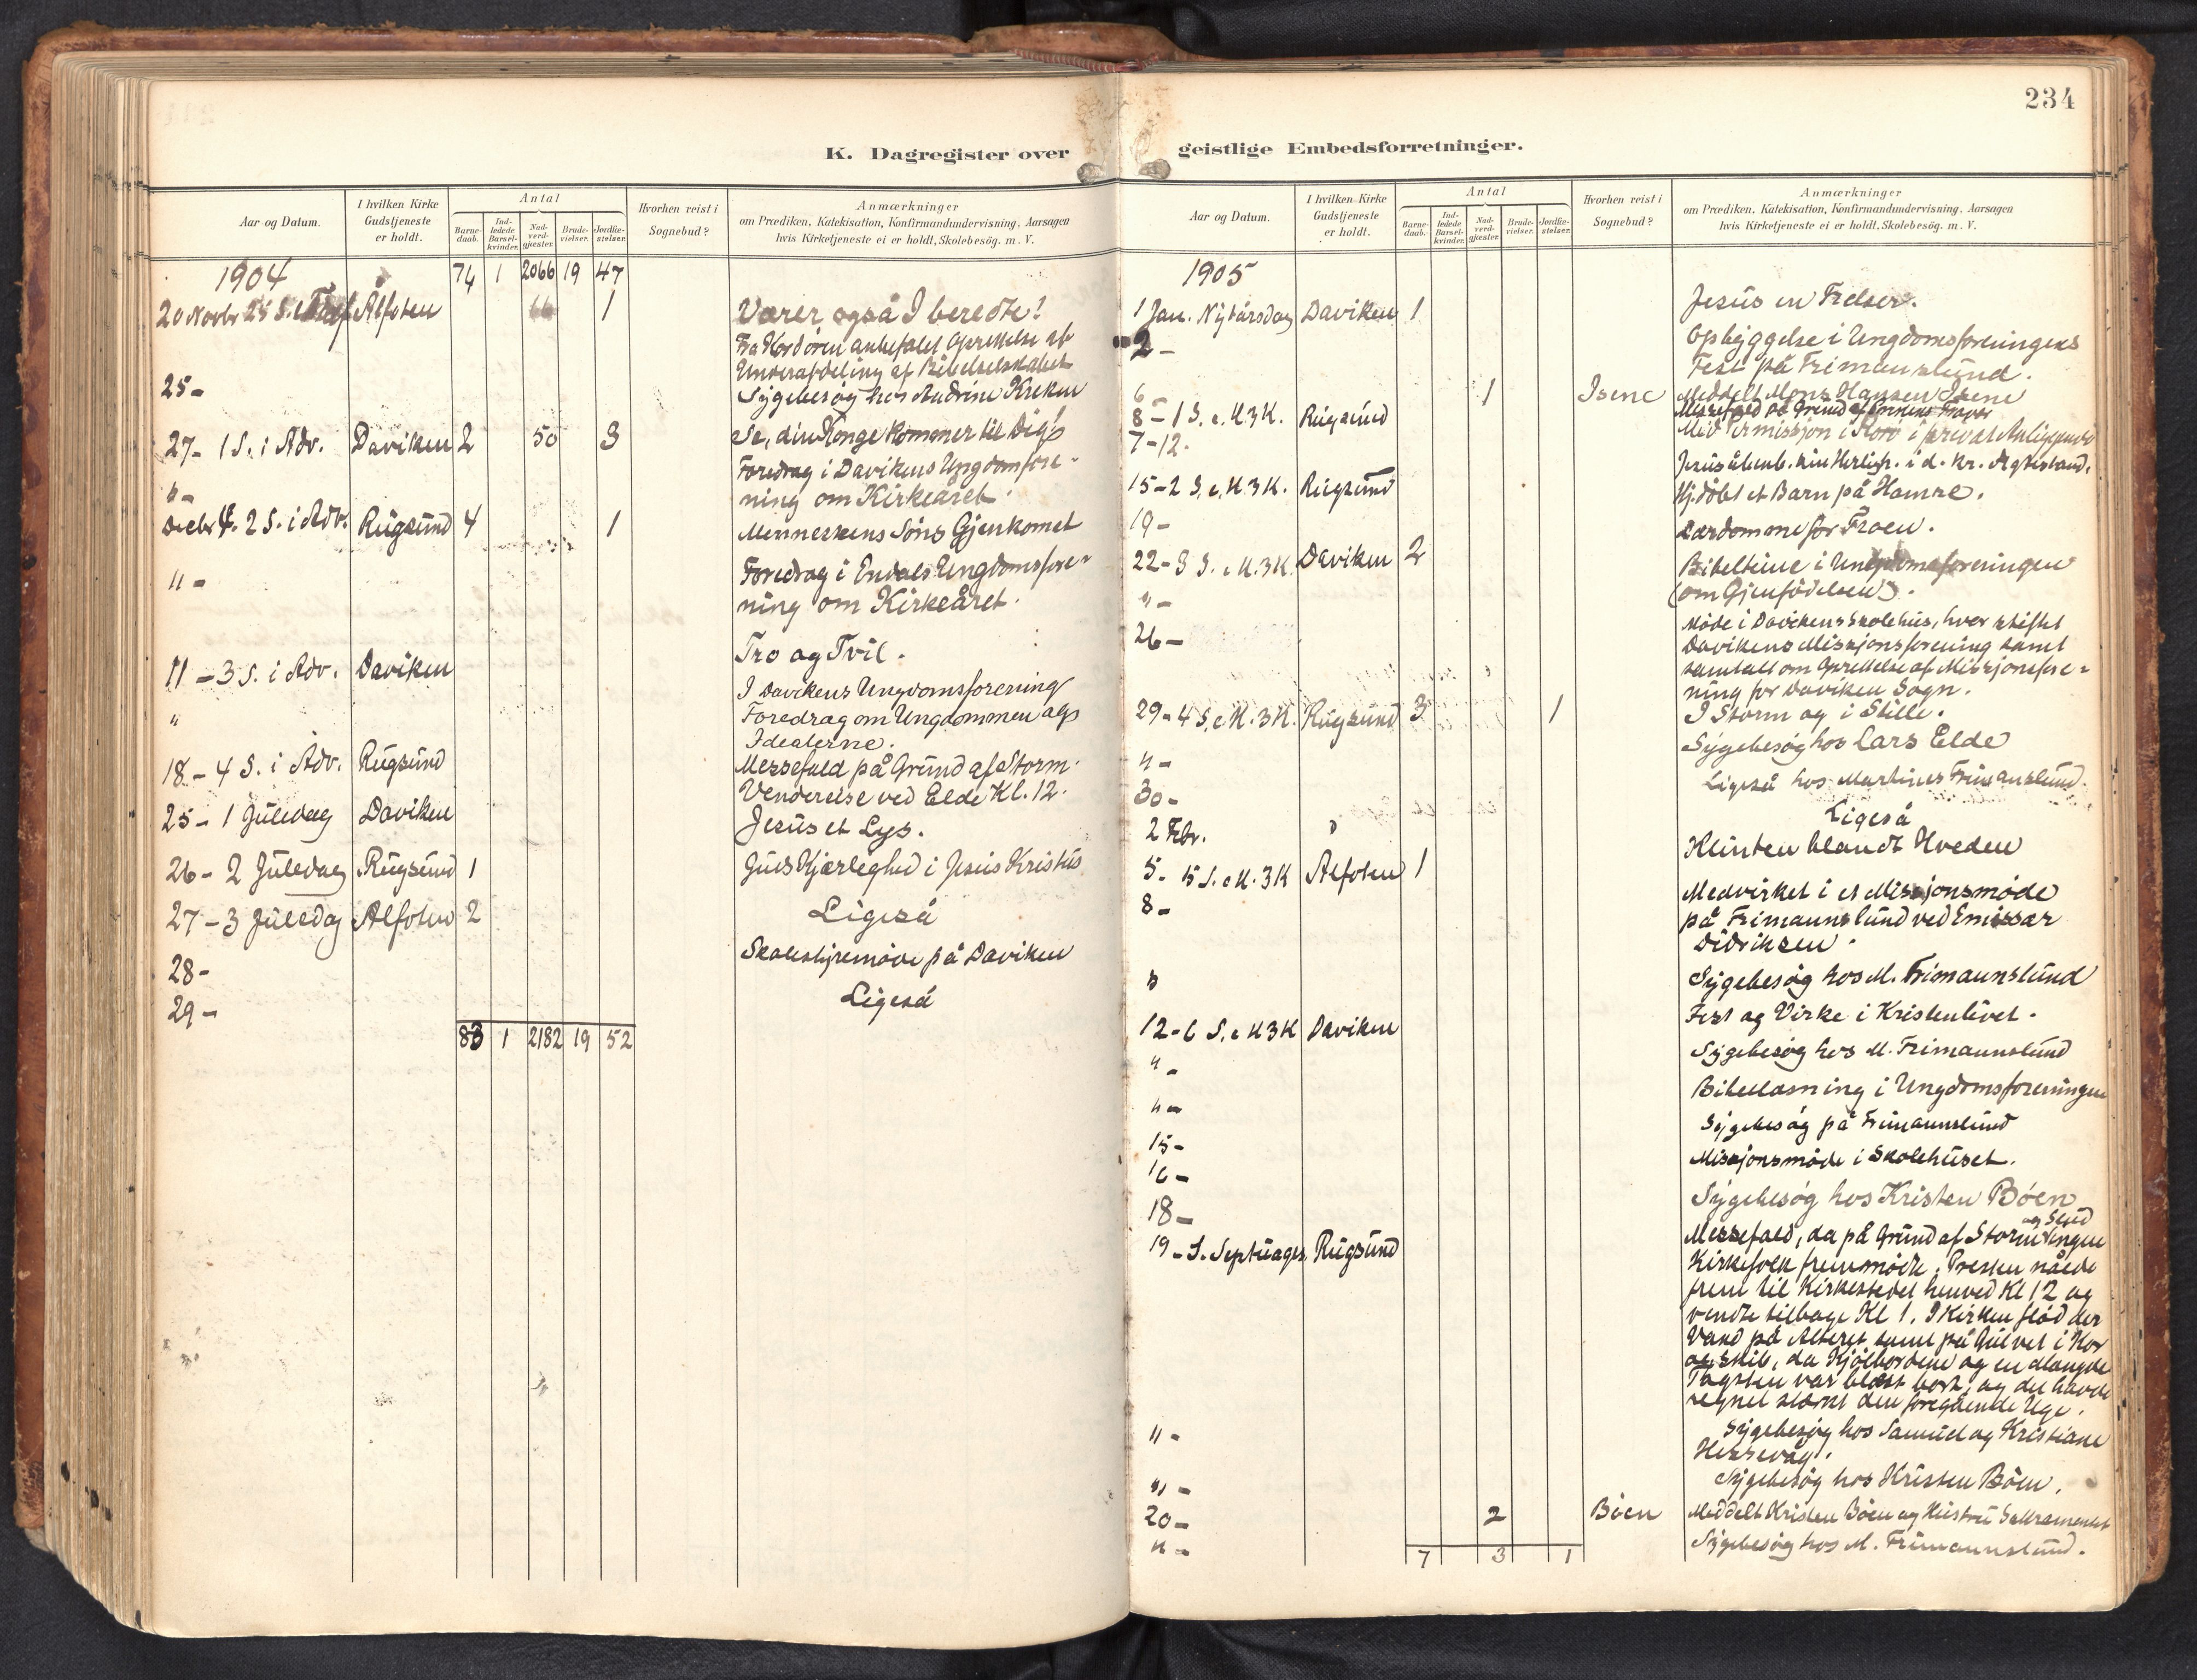 234
K. Dagregister over geistlige Embedsforretninger.
Aar og Datum.
I hvilken Kirke Gudstjeneste er holdt.
Antal
Barne-daab.
Ind-ledede Barsel-kvinder.
Nad-verd-gjæster.
Brude-vielser.
Jordfæ-stelser.
Hvorhen reist i Sognebud?
Anmærkninger
om Prædiken, Katekisation, Konfirmandundervisning, Aarsagen
hvis Kirketjeneste ei er holdt, Skolebesög. m. V.
1904 74 1 2066 19 47
20 Novbr 25 S. e. Tref Ålfoten 66 1 Værer også I beredte!
Fra Kordören anbefalet Oprettelse af
Underafdeling af Bibelselskabet
25- Sygebesög hos Andrine Kreken
27- 1 S. i Adv. Daviken 2 50 3 Se, din Konge kommer til Dig
" - Foredrag i Davikens Ungdomsfore-
ning om Kirkeåret.
Decbr 4. 2 S. i Adv. Rugsund 4 1 Menneskens Söns Gjenkomst
" - Foredrag i Endals Ungdomsfore-
ning om Kirkeåret.
11 - 3 S. i Adv. Daviken Tro og Tvil.
" I Davikens Ungdomsforening
Foredrag om Ungdommen og
Idealerne.
18 - 4 S. i Adv. Rugsund Messefald på Grund af Storm.
Vendereise ved Elde Kl. 12.
25 - 1 Juledag Daviken Jesus et Lys.
26 - 2 Juledag Rugsund 1 Guds Kjærlighed i Jesus Kristus
27 - 3 Juledag Alfoten 2 Ligeså
28- Skolestyremöde på Daviken
29- Ligeså
83 1 2182 19 52
Aar og Datum.
I hvilken Kirke Gudstjeneste er holdt.
Antal
Barne-daab.
Ind-ledede Barsel-kvinder.
Nad-verd-gjæster.
Brude-vielser.
Jordfæ-stelser.
Hvorhen reist i Sognebud?
Anmærkninger
om Prædiken, Katekisation, Konfirmandundervisning, Aarsagen
hvis Kirketjeneste ei er holdt, Skolebesög. m. V.
1905
1 Jan. Nytårsdag Daviken 1 Jesus en Frelser.
2 - Opbyggelse i Ungdomsforeningens
Fest på Frimanslund.
6 1 Isene Meddelt Mons Hansen Isene
8 - 1 S. e. H. 3 K. Rugsund Messefald på Grund af
7-12. Med Permissjon i i privat Anliggende
15 - 2 S. e. H. 3 K. Rugsund Jesus åbenb. sin Herligh. i d. kr. Ægtestand.
19 - Hj.döbt et Barn på Hamre.
22 - 3 S. e. H. 3 K. Daviken 2 Lærdomme for Troen.
" - Bibeltime i Ungdomsforeningen
(om Gjenfödelsen).
26 - Möde i Davikens Skolehus, hvor stiftet
Davikens Missjonsforening samt
samtalt om Oprettelse af Missjonsfore-
ning for Daviken Sogn.
29 - 4 S. e. H. 3 K. Rugsund 3 1 I Storm og i Stille.
" - Sygebesög hos Lars Elde
30 - Ligeså hos Martines Frimanslund.
2 Febr. " Ligeså
5 - 5 S. e. H. 3 K Alfoten 1 Klinten blandt Hveden
8 - Medvirket i et Missjonsmöde
på Frimannslund ved Emissær
Didriksen.
" Sygebesög hos M. Frimannslund
12 - 6 S. e. H 3 K Daviken Fest og Virke i Kristenlivet.
" - Sygebesög hos M. Frimannslund
" - Bibellæsning i Ungdomsforeningen
15 - Sygebesög på Frimannslund
16 - Missjonsmöde i Skolehuset.
18 - Sygebesög hos Kristen Böen
19 - S. Septuages. Rugsund Messefald, da på Grund af Storm og Slud ingen
Kirkefolk fremmödte. Presten nåede
frem til Kirkestedet henved Kl 12 og
vendte tilbage Kl 1. I Kirken flöd der
Vand på Alteret samt på Gulvet i Kor
og Skib, da Kjölbordene og en
Tagsten var blæst bort, og det havde
regnet stærkt den foregående Uge.
" - Sygebesög hos Samuel og Kristiane
Hessevåg.
" - Sygebesög hos Kristen Böen.
20 - 2 Böen Meddelt Kristen Böen og Hustru Sakramentet
" - Sygebesög hos M. Frimannslund.
7 3 1